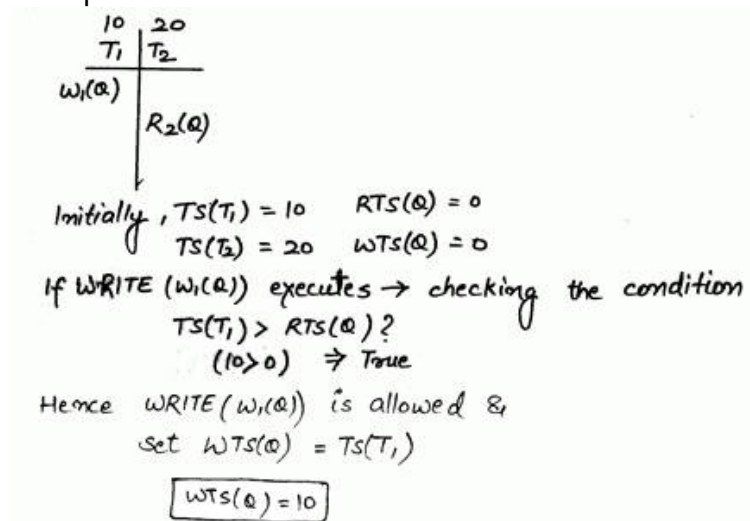 10 20
T₁ T₂
W₁(Q)
R₂(Q)
Initially, TS(T₁) = 10 RTS(Q) = 0
TS(T₂) = 20 WTS(Q) = 0
If WRITE (W₁(Q)) executes → checking the condition
TS(T₁) > RTS(Q)?
(10>0) ⇒ True
Hence WRITE (W₁(Q)) is allowed &
set WTS(Q) = TS(T₁)
WTS(Q) = 10